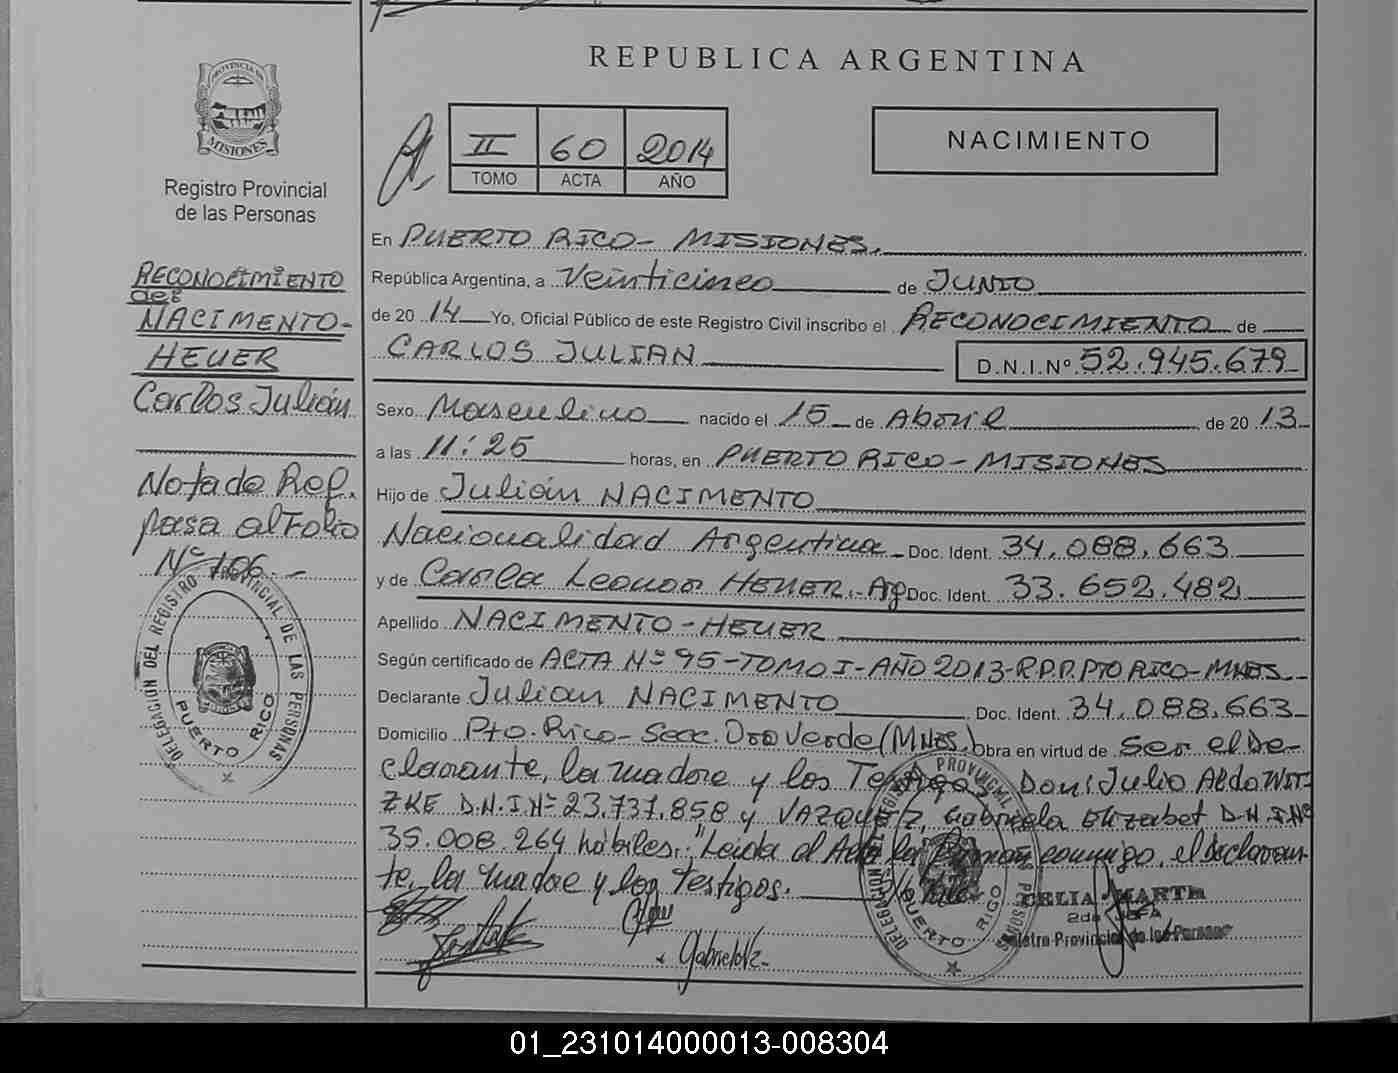 REPUBLICA ARGENTINA
PROVINCIA DE
MISIONES
Registro Provincial
de las Personas
II 60 2014
TOMO ACTA AÑO
NACIMIENTO
RECONOCIMIENTO
de:
NACIMENTO-
HEUER
Carlos Julián
Nota de Ref.
pasa al Folio
Nº 106.-
DELEGACION DEL REGISTRO PROVINCIAL DE LAS PERSONAS
PUERTO RICO
En PUERTO RICO- MISIONES.
República Argentina, a Veinticinco de JUNIO
de 20 14 Yo, Oficial Público de este Registro Civil inscribo el RECONOCIMIENTO de
CARLOS JULIAN D.N.I.Nº 52.945.679
Sexo Masculino nacido el 15 de Abril de 20 13
a las 11:25 horas, en PUERTO RICO-MISIONES
Hijo de Julián NACIMENTO
Nacionalidad Argentina Doc. Ident. 34.088.663
y de Carla Leonor HEUER.-Arg Doc. Ident. 33.652.482
Apellido NACIMENTO-HEUER
Según certificado de ACTA Nº 95-TOMO I-AÑO 2013-R.P.P. PTO RICO-MNES.
Declarante Julian NACIMENTO Doc. Ident. 34.088.663
Domicilio Pto. Rico- Secc. Oro Verde (MNES.) Obra en virtud de ser el De-
clarante, la madre y los Testigos Don: Julio Aldo WIT-
ZKE D.N.I Nº 23.737.858 y VAZQUEZ, Gabriela Elizabet D.N.I Nº
35.008.264 hábiles.: "Leida el Acta la Firman conmigo, el declaran-
te, la madre y los Testigos.
GabrielaVz
DELEGACION DEL REGISTRO PROVINCIAL DE LAS PERSONAS
PUERTO RICO
CELIA MARTA
2da JEFA
Registro Provincial de las Personas
01_231014000013-008304